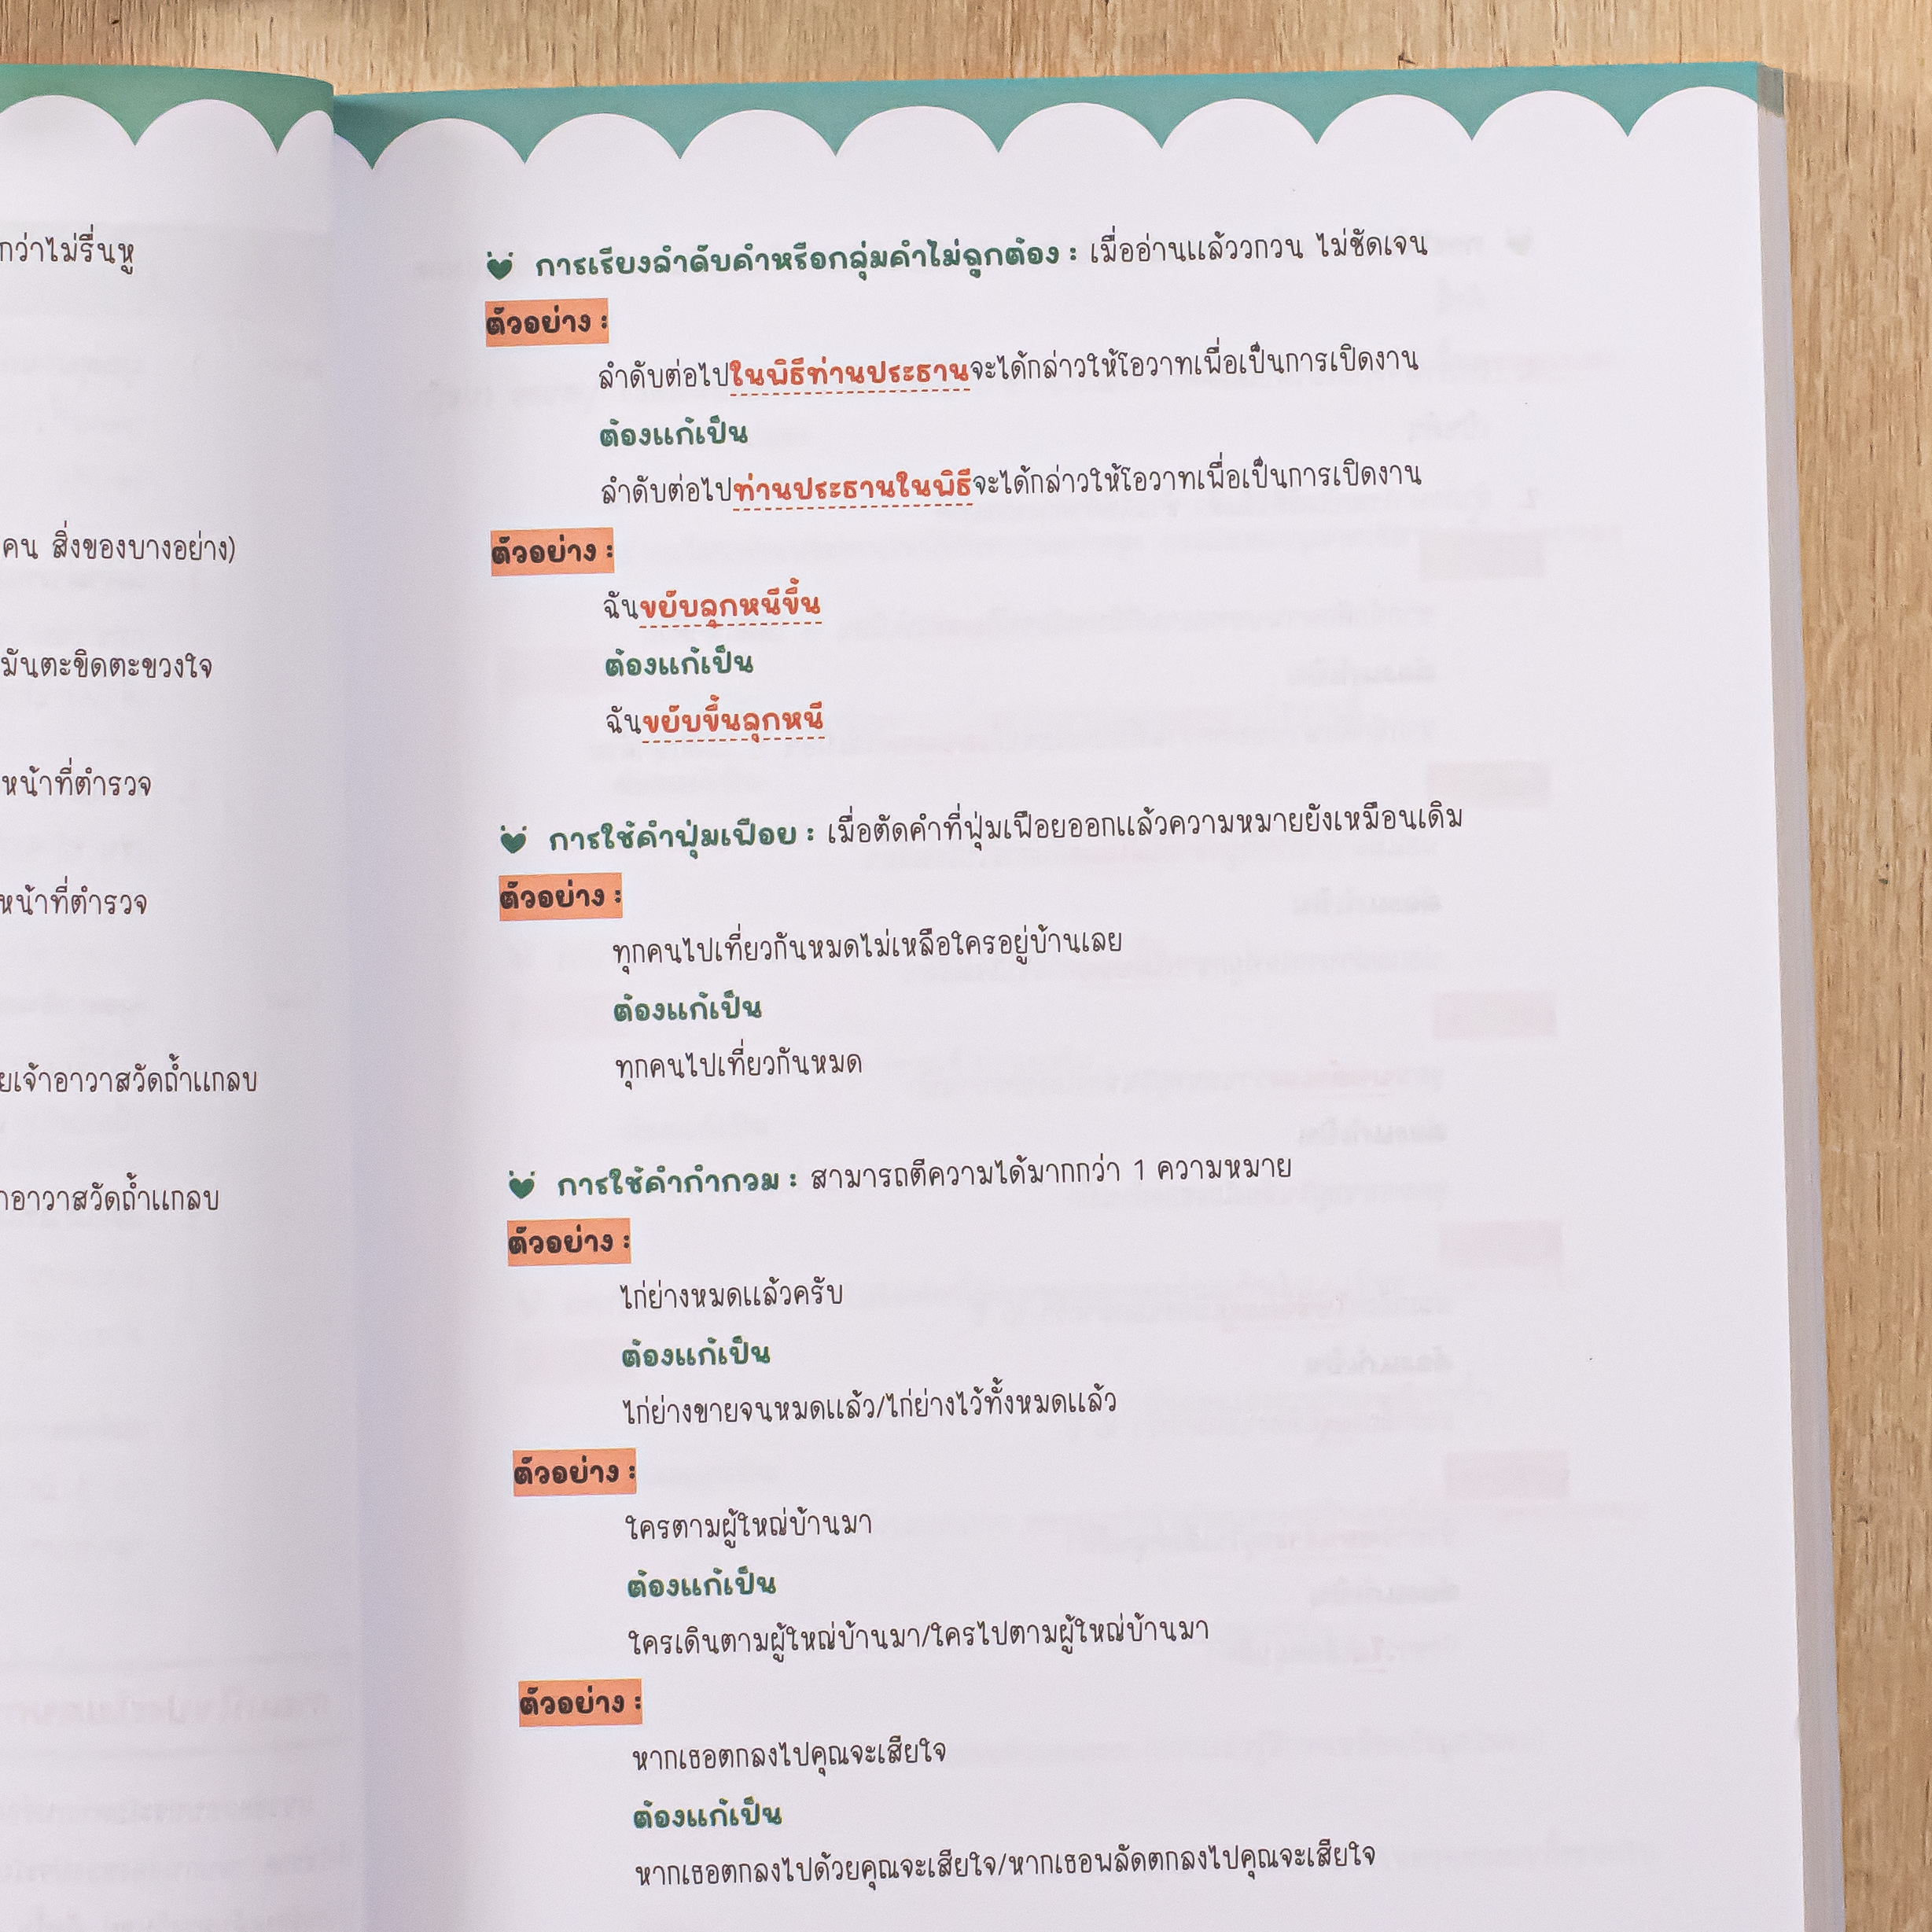 กว่าไม่รื่นหู
คน สิ่งของบางอย่าง)
มันตะขิดตะขวงใจ
หน้าที่ตำรวจ
หน้าที่ตำรวจ
ยเจ้าอาวาสวัดถ้ำแกลบ
าอาวาสวัดถ้ำแกลบ
การเรียงลำดับคำหรือกลุ่มคำไม่ถูกต้อง : เมื่ออ่านแล้ววกวน ไม่ชัดเจน
ตัวอย่าง :
ลำดับต่อไปในพิธีท่านประธานจะได้กล่าวให้โอวาทเพื่อเป็นการเปิดงาน
ต้องแก้เป็น
ลำดับต่อไปท่านประธานในพิธีจะได้กล่าวให้โอวาทเพื่อเป็นการเปิดงาน
ตัวอย่าง :
ฉันขยับลูกหนีขึ้น
ต้องแก้เป็น
ฉันขยับขึ้นลูกหนี
การใช้คำฟุ่มเฟือย : เมื่อตัดคำที่ฟุ่มเฟือยออกแล้วความหมายยังเหมือนเดิม
ตัวอย่าง :
ทุกคนไปเที่ยวกันหมดไม่เหลือใครอยู่บ้านเลย
ต้องแก้เป็น
ทุกคนไปเที่ยวกันหมด
การใช้คำกำกวม : สามารถตีความได้มากกว่า 1 ความหมาย
ตัวอย่าง :
ไก่ย่างหมดแล้วครับ
ต้องแก้เป็น
ไก่ย่างขายจนหมดแล้ว/ไก่ย่างไว้ทั้งหมดแล้ว
ตัวอย่าง :
ใครตามผู้ใหญ่บ้านมา
ต้องแก้เป็น
ใครเดินตามผู้ใหญ่บ้านมา/ใครไปตามผู้ใหญ่บ้านมา
ตัวอย่าง :
หากเธอตกลงไปคุณจะเสียใจ
ต้องแก้เป็น
หากเธอตกลงไปด้วยคุณจะเสียใจ/หากเธอพลัดตกลงไปคุณจะเสียใจ